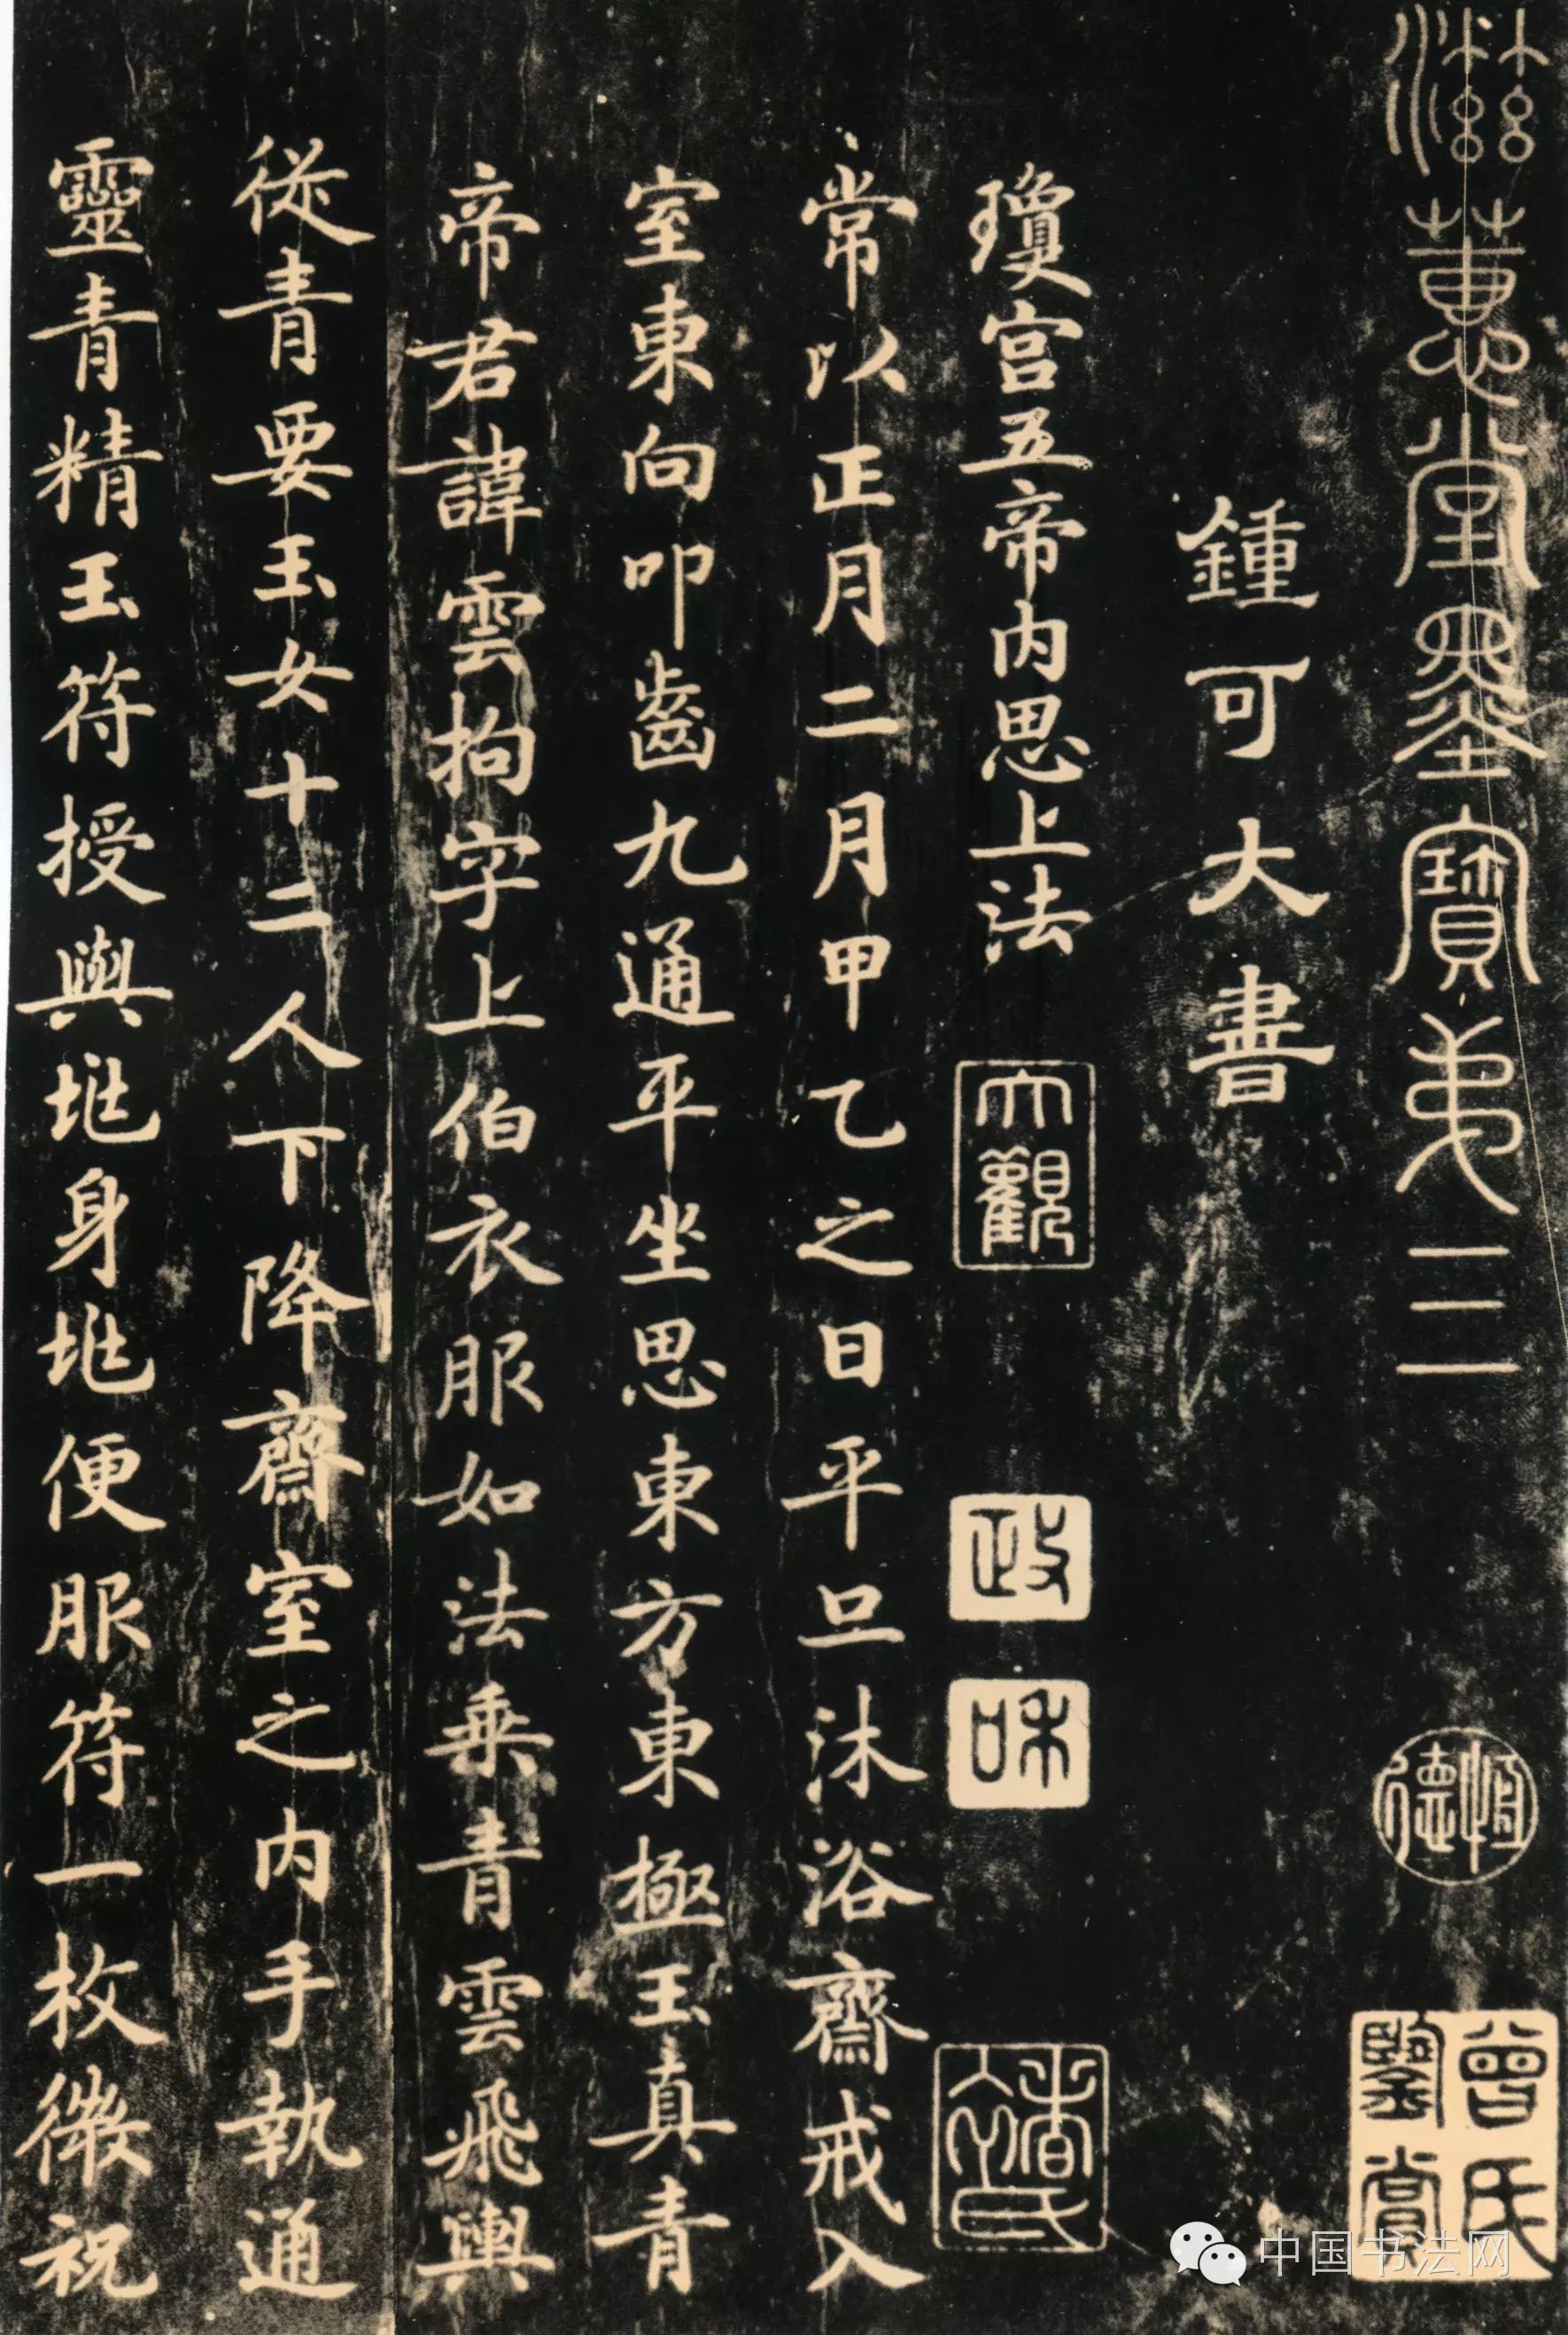 滋蕙堂墨寶弟三
恒德
曾氏鑒賞
鍾可大書
瓊宫五帝内思上法
大觀
政
和
常以正月二月甲乙之日平旦沐浴齋戒入
室東向叩齒九通平坐思東方東極玉真青
帝君諱雲拘字上伯衣服如法乗青雲飛輿
從青要玉女十二人下降齋室之内手執通
靈青精玉符授與兆身兆便服符一枚微祝
中国书法网